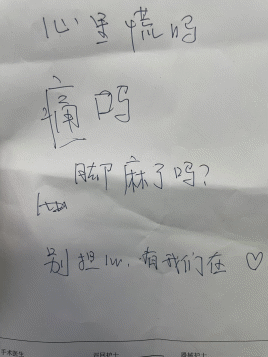 心里慌吗
痛吗
脚麻了吗?
别担心,有我们在♡
手术医生 巡回护士 器械护士